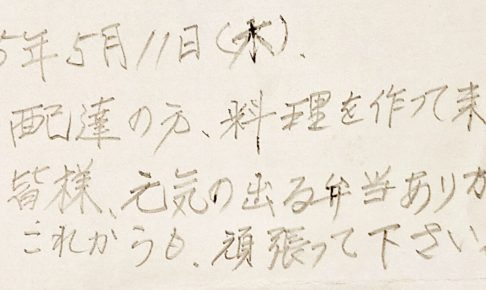 5年5月11日(木).
配達の方、料理を作って来
皆様、元気の出る弁当ありが
これからも、頑張って下さい。